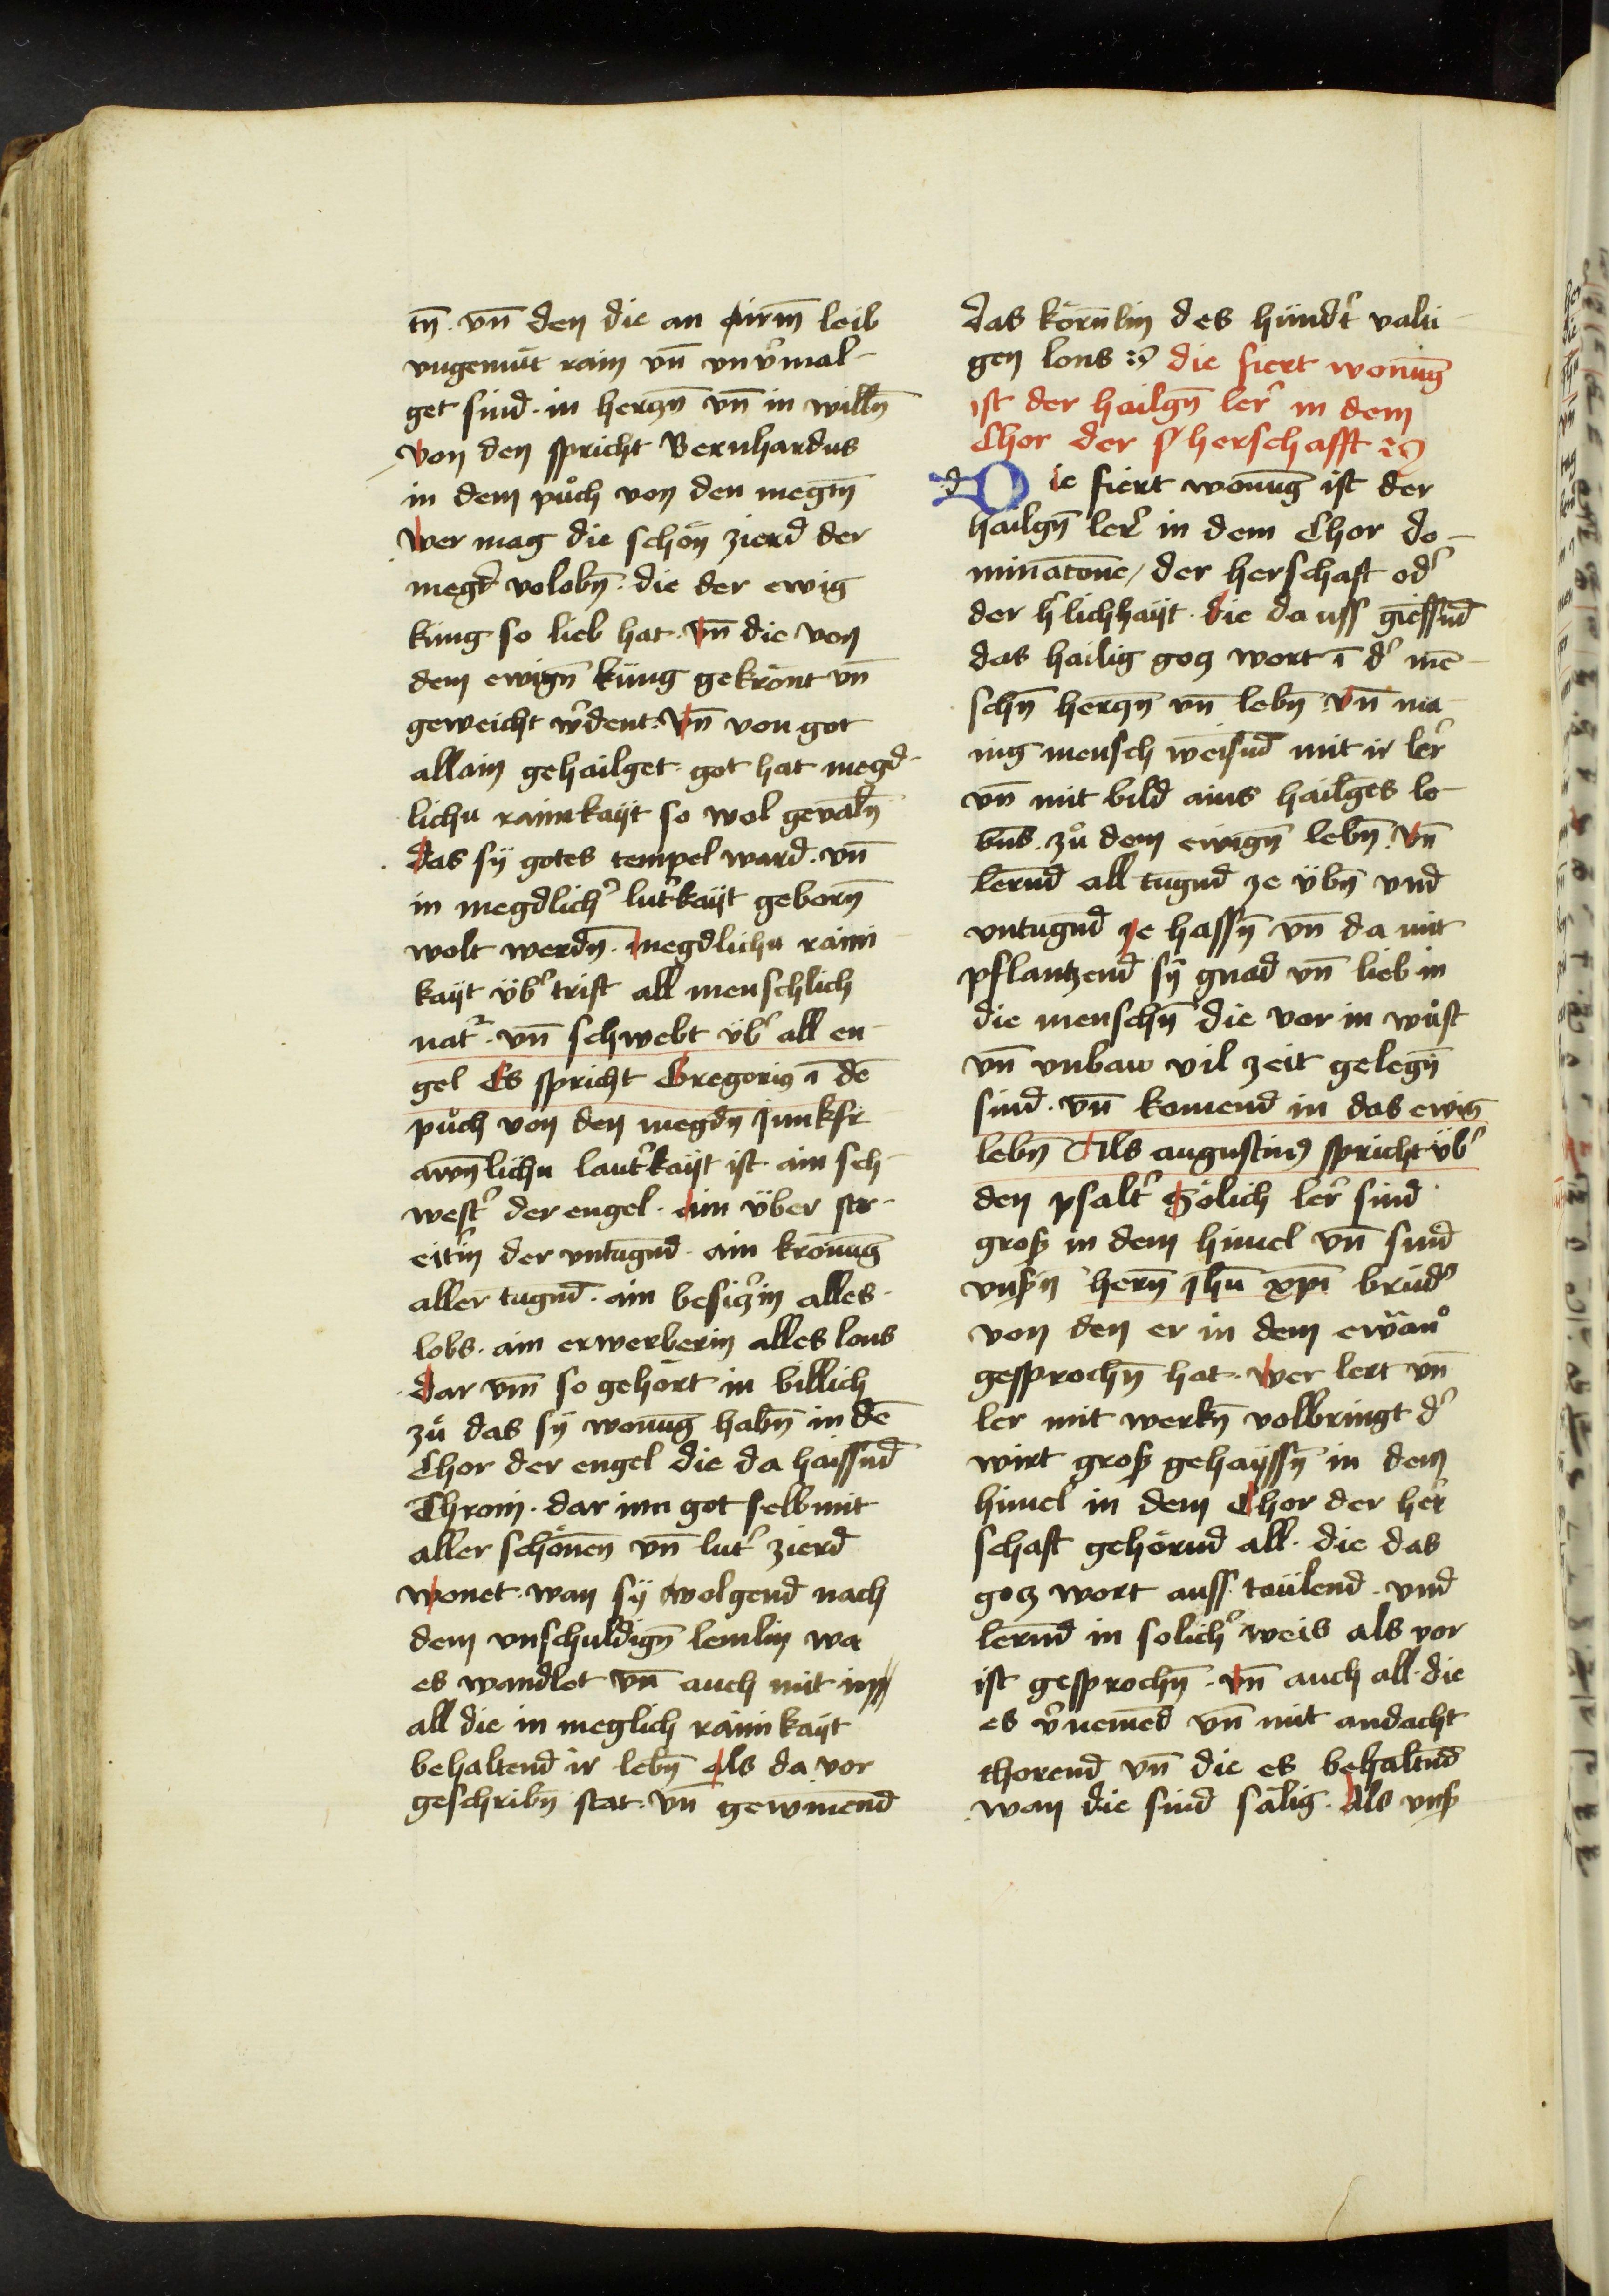 tn̄ · vn̄ den die an irm̄ leib
vngemüt rain vn̄ vnv̓mal-
get sind · in herczn̄ vn̄ in willn̄
Von den spricht Bernhardus
in dem půch von den megtn̄
Wer mag die schön zierd der
megt̓ volobn̄ · die der ewig
küng so lieb hat · Vn̄ die von
dem ewign̄ küng gekrönt vn̄
geweicht w̓dent · Vn̄ von got
allain gehailget · got hat megd-
lichu rainikayt so wol gevaln̄
Das sy gotes tempel ward · vn̄
in megdlich̓ lut̓kayt geborn̄
wolt werdn̄ · Megdlichu raini
kayt üb̓ trift all menschlich
nat̓ · vn̄ schwebt üb̓ all en-
gel Es spricht Gregorius ī dē
půch von den megdn̄ Junkfr
awn̄lichu laut̓kayt ist · ain sch-
west̓ der engel · Ain über str-
eit̓in der vntugn̄d · ain krönūg
aller tugn̄d · ain besicz̓in alles ·
lobs · ain erwerberin alles lons
Dar vm̄ so gehört in billich
zů das sy wonūg habn̄ in dē
Chor der engel die da haissn̄d
Throni · dar inn got selb mit
aller schönen̄ vn̄ lut̓ zierd
wonet · wan sy wolgend nach
dem vnschuldign̄ lemlin wa
es wandlet vn̄ auch mit im
all die in meglich rainikayt
behaltend ir lebn̄ Als da vor
geschribn̄ stat · vn̄ gewinēnd
das körn̄lin des hündt̓ valti
gen lons die fiert wonūg
ist der hailgn̄ ler̓ in dem
Chor der herschafft
Die fiert wonūg ist der
hailgn̄ ler̓ in dem Chor do-
minatōne / der herschaft od̓
der h̓lichhayt · Die da uss giessn̄d
das hailig gocz wort ī d̓ mē-
schn̄ herczn̄ vn̄ lebn̄ Vn̄ ma-
nig mensch weisn̄d mit ir ler̓
vn̄ mit bild ains hailges le-
bn̄s · zů dem ewign̄ lebn̄ · Vn̄
lern̄d all tugn̄d ze übn̄ vnd
vntugn̄d ze hassn̄ vn̄ da mit
pflantzend sy gnad vn̄ lieb in
die menschn̄ die vor in wůst
vn̄ vnbaw vil zeit gelegn̄
sind · vn̄ komend in das ewig
lebn̄ Als augustinus spricht üb̓
den psalt̓ Sölich ler̓ sind
groß in dem himel vn̄ sind
vns̓n hern̄ Jhū xp̄i brüd̓
von den er in dem ewāū
gesprochn̄ hat · Wer lert vn̄
ler mit werkn̄ volbringt d̓
wirt groß gehayssn̄ in dem
himel in dem Chor der her̓
schaft gehörnd all · die das
gocz wort auss taülend · vnd
lern̄d in solich̓ weis als vor
ist gesprochn̄ · Vn̄ auch all · die
es v̓nemed vn̄ mit andacht
chorend vn̄ die es behaltn̄d
wan die sind sälig · Als vnß